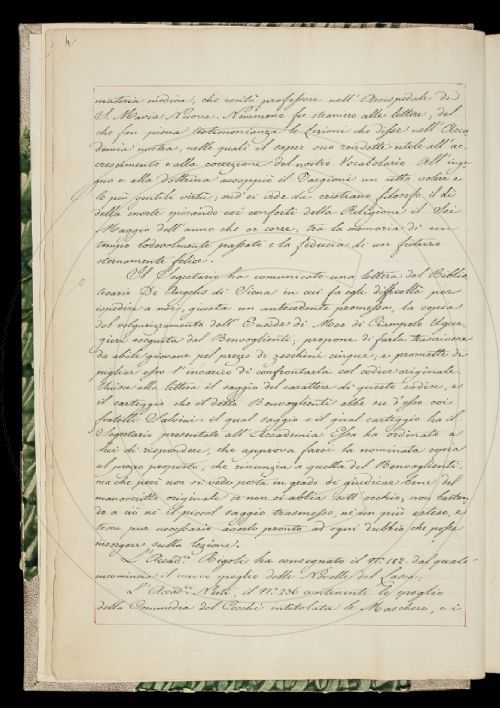 materia medica, che venti professore nell' Arcispedale di
S. Maria Nuova. Nemmeno fu straniero alle lettere, del
che fan piena testimonianza le Lezioni che disse nell' Acca
demia nostra, nelle quali il saper suo rendette utile all' ac
crescimento e alla correzione del nostro Vocabolario. All' inge
gno e alla dottrina accoppiò il Targioni un retto volere e
le più gentili virtù; ond' ei vide da cristiano filosofo il dì
della morte spirando coi conforti della Religione il Sei
Maggio dell' anno che or corre, tra la memoria di un
tempo lodevolmente passato e la fiducia di un futuro
eternamente felice.
Il Segretario ha comunicato una lettera del Biblio
tecario De Angelis di Siena in cui fa egli difficoltà per
ispedire a noi, giusta un antecedente promessa, la copia
del volgarizzamento dell' Eneide di Meo di Ciampolo Ugur
gieri eseguita dal Benvoglienti; propone di farla trascrivere
da abile giovane pel prezzo di zecchini cinque, e promette di
pigliar esso l' incarico di confrontarla col codice originale.
Unisce alla lettera il saggio del carattere di questo codice, e
il carteggio che il detto Benvoglienti ebbe su d'esso coi
fratelli Salvini: il qual saggio e il qual carteggio ha il
Segretario presentato all' Accademia. Essa ha ordinato a
lui di rispondere, che approva farsi la nominata copia
al prezzo proposto, che rinunzia a quella del Benvoglienti
ma che però non si vede posta in grado di giudicar bene del
manoscritto originale se non ci abbia sott' occhio, non bastan
do a ciò nè il piccol saggio trasmesso, nè un più esteso, e
trova pur necessario averlo pronto ad ogni dubbio che possa
insorgere sulla lezione.
L' Accad.co Rigoli ha consegnato il N.o 182. dal quale
incomincia il nuovo spoglio delle Novelle del Lasca;
L' Accad.co Nesti, il N.o 236 contenente lo spoglio
della Commedia del Cecchi intitolata le Maschere, e i